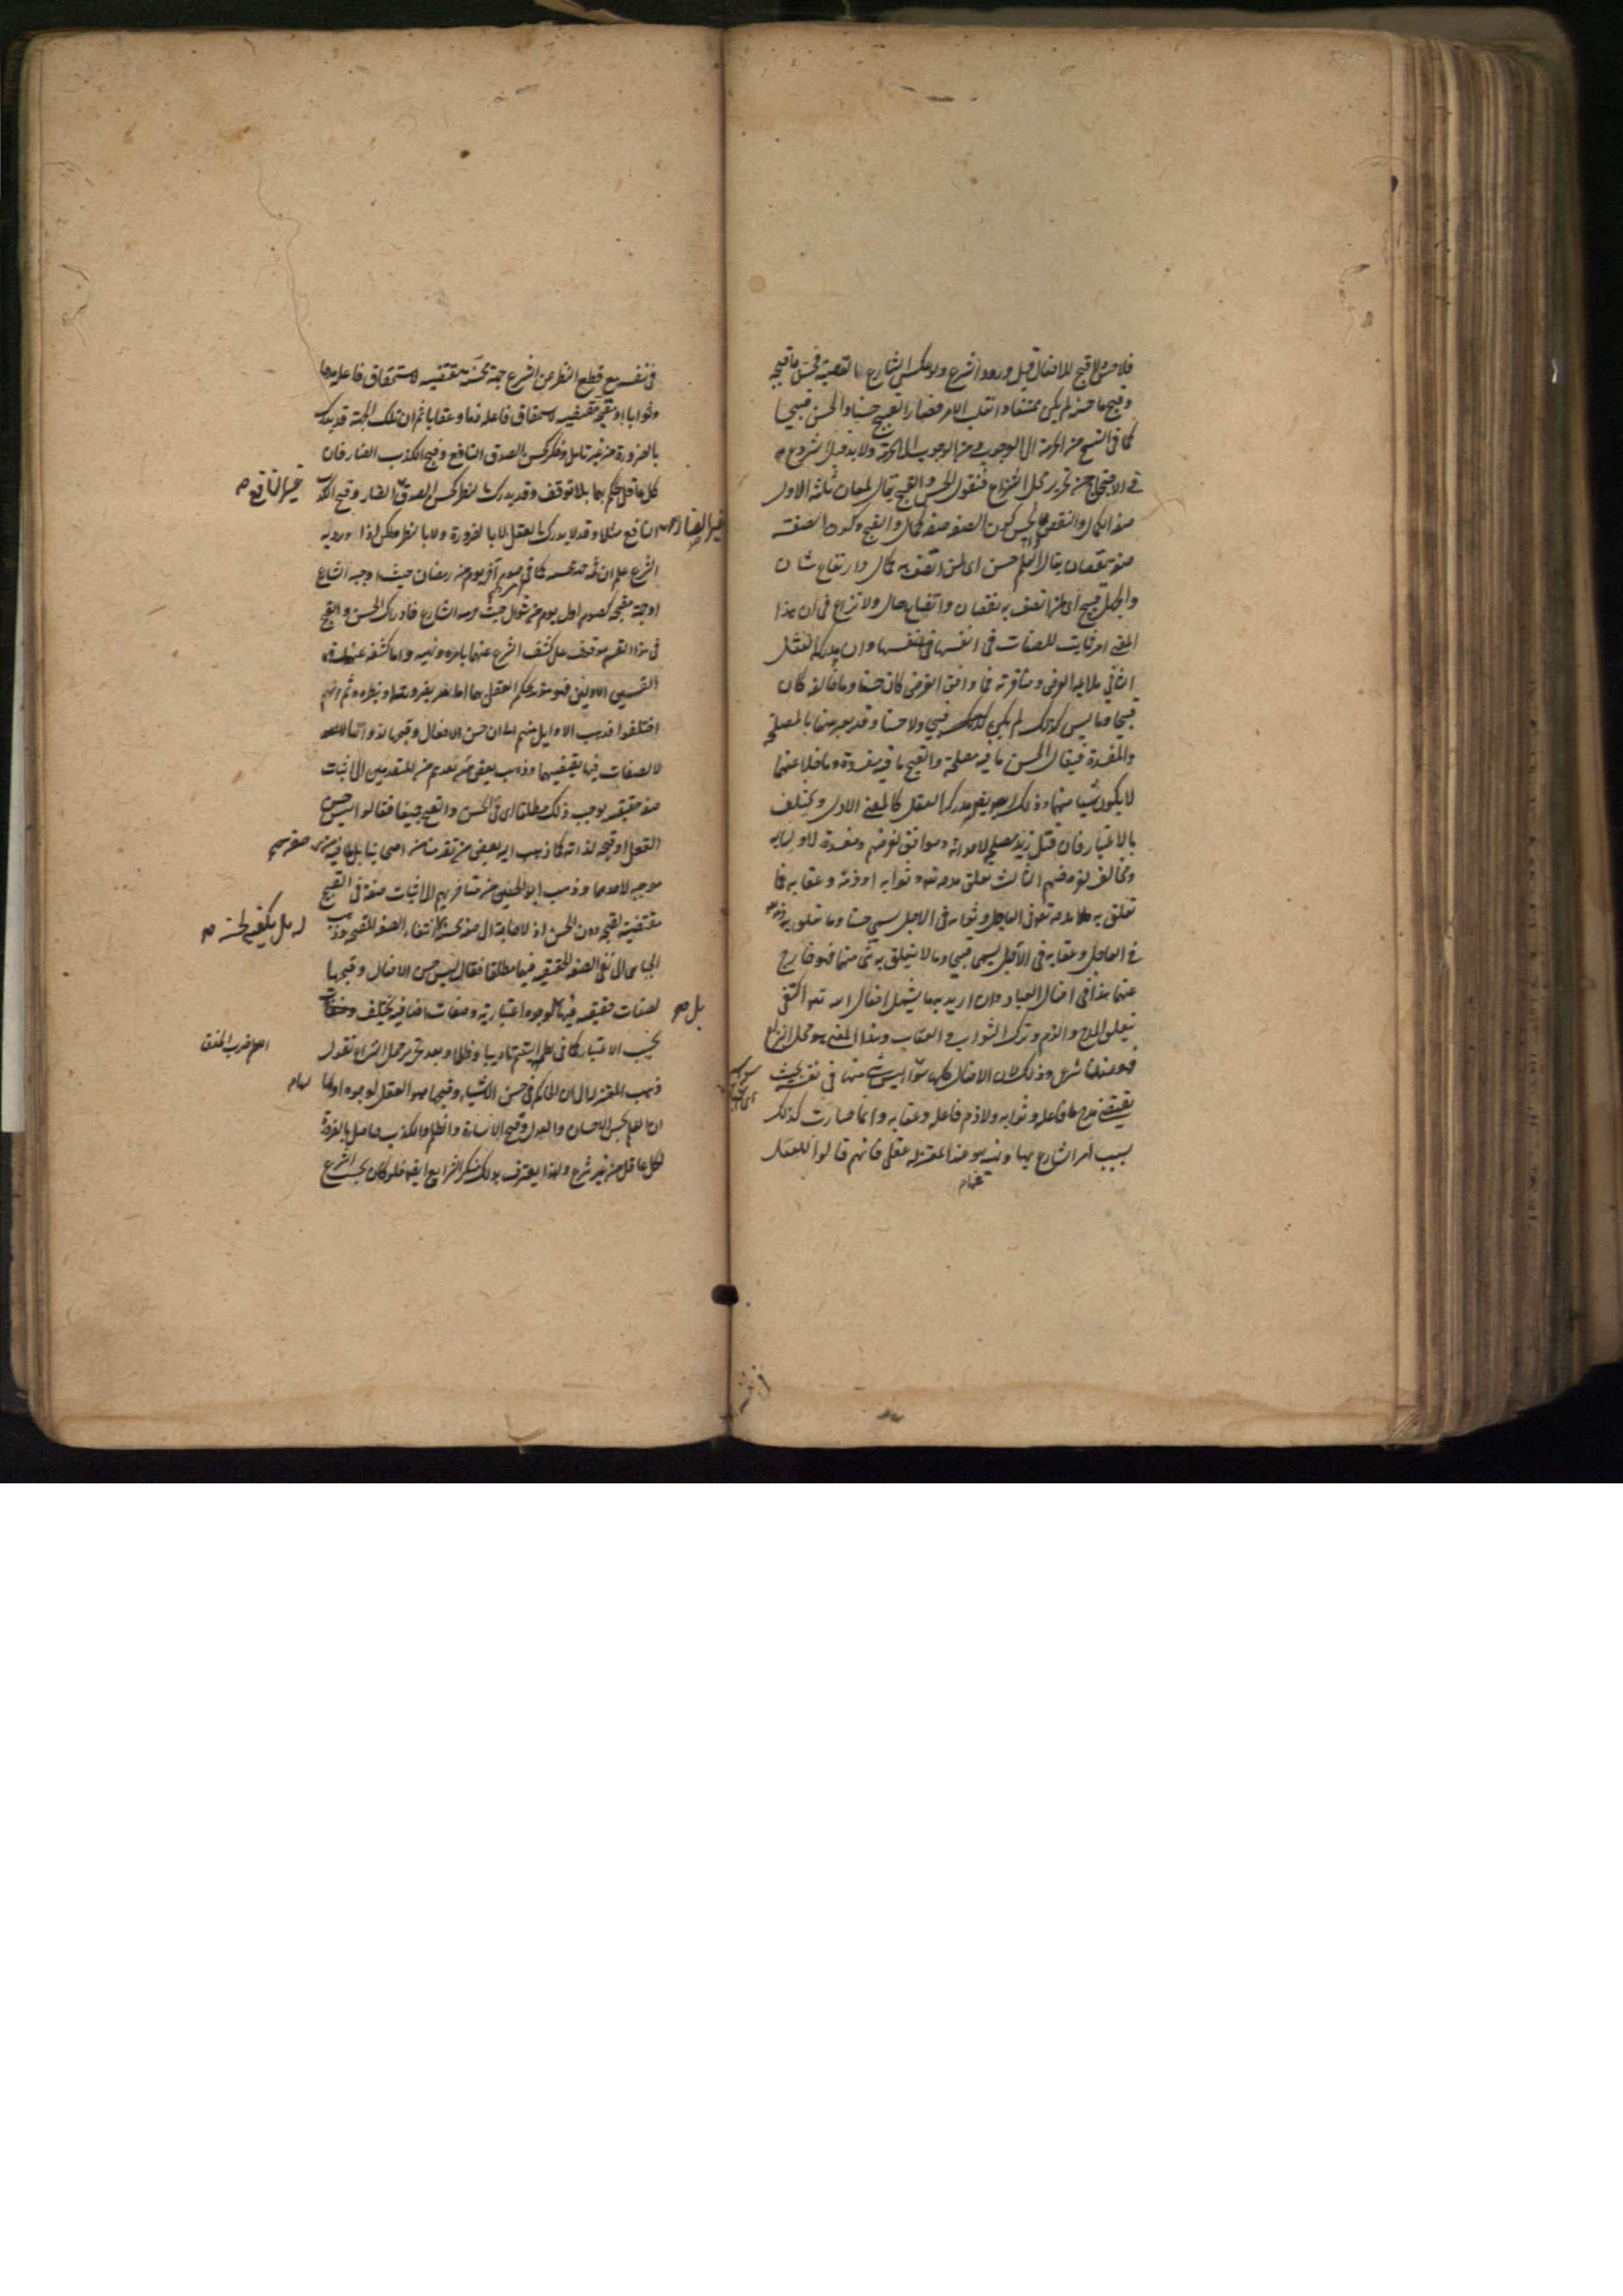 فلا حسن ولا قبح للافعال قبل ورود الشرع ولو عكس الشارع القضية فحسن ما قبحه
وقبح ما حسنه لم يكن ممتنعا وانقلب الامر فصار القبيح حسنا والحسن قبيحا
كما فى النسخ من الحرمة الى الوجوب ومن الوجوب الى الحرمة ولا بد قبل الشروع
فى الاحتجاج من تحرير محل النزاع فنقول الحسن والقبح يقال لمعان ثلثة الاول
صفة الكمال والنقص فالحسن كون الصفة صفة كمال والقبح كون الصفة
صفة نقصان يقال العلم حسن اى لمن اتصف به كمال وارتفاع شان
والجهل قبيح اى لمن اتصف به نقصان واتضاع حال ولا نزاع فى ان هذا
المعنى امر ثابت للصفات فى انفسها وان مدركه العقل
الثانى ملايمة الغرض ومنافرته فما وافق الغرض كان حسنا وما خالفه كان
قبيحا وما ليس كذلك لم يكن قبيحا ولا حسنا وقد يعبر عنهما بالمصلحة
والمفسدة فيقال الحسن ما فيه مصلحة والقبيح ما فيه مفسدة وما خلا عنهما
لا يكون شيا منهما وذلك ايضا مدركه العقل كالمعنى الاول ويختلف
بالاعتبار فان قتل زيد مصلحة لاعدائه وموافق لغرضهم ومفسدة لاوليائه
ومخالف لغرضهم الثالث تعلق مدحه تعه وثوابه او ذمه وعقابه فما
تعلق به مدحه تعه فى العاجل وثوابه فى الاجل يسمى حسنا وما تعلق به ذمه
فى العاجل وعقابه فى الآجل يسمى قبيحا وما لا يتعلق به شى منهما فهو خارج
عنهما هذا فى افعال العباد وان اريد به ما يشمل افعال الله تعه اكتفى
بتعلق المدح والذم وترك الثواب والعقاب وهذا المعنى هو محل النزاع
فهو عندنا شرعى وذلك لان الافعال كلها سواء ليس شى منها فى نفسه بحيث
يقتضى مدح فاعله وثوابه ولا ذم فاعله وعقابه وانما صارت كذلك
بسبب امر الشارع بها ونهيه عنها وعند المعتزلة عقلى فانهم قالوا للفعل
فى نفسه مع قطع النظر عن الشرع جهة محسنة مقتضية لاستحقاق فاعله مدحا
وثوابا او مقبحة مقتضية لاستحقاق فاعله ذما وعقابا ثم ان تلك الجهة قد يدرك
بالضرورة من غير تامل وفكر كحسن الصدق النافع وقبح الكذب الضار فان
كل عاقل يحكم بهما بلا توقف وقد يدرك بالنظر كحسن الصدق الضار وقبح الكذب
غير النافع
النافع مثلا وقد لا يدرك بالعقل لا بالضرورة ولا بالنظر ولكن اذا ورد به
الشرع علم ان ثمه جهة محسنة كما فى صوم آخر يوم من رمضان حيث اوجبه الشارع
او جهة مقبحة كصوم اول يوم من شوال حيث حرمه الشارع فادراك الحسن والقبح
فى هذا القسم موقوف على كشف الشرع عنهما بامره ونهيه واما كشفه عنهما فى
القسمين الاولين فهو مؤيد لحكم العقل بهما اما بضرورته او بنظره ثم انهم
اختلفوا فذهب الاوايل منهم الى ان حسن الافعال وقبحها لذواتها
لا لصفات فيها تقتضيهما وذهب بعض من بعدهم من المتقدمين الى اثبات
صفة حقيقية يوجب ذلك مطلقا اى فى الحسن والقبح جميعا فقالوا ليس حسن
الفعل او قبحه لذاته كما ذهب اليه بعض من تقدمنا من اصحابنا بل لما فيه من صفة
موجبة لاحدهما وذهب ابو الحسين من متاخريهم الى اثبات صفة فى القبيح
مقتضية لقبحه دون الحسن اذ لا حاجة الى صفة محسنة انتفاء الصفة المقبحة وذهب
له بل يكفى لحسنه
الجبائى الى نفى الصفة الحقيقية فيهما مطلقا فقال ليس حسن الافعال وقبحها
لصفات حقيقية فيها بل لوجوه اعتبارية وصفات اضافية يختلف
بحسب الاعتبار كما فى لطم اليتيم تاديبا وظلما وبعد تحرير محل النزاع نقول
ذهب المعتزلة الى ان الحاكم فى حسن الاشياء وقبحها هو العقل لوجوه اولها
ان العلم بحسن الاحسان والعدل وقبح الاساءة والظلم والكذب حاصل بالضرورة
لكل عاقل من غير شرع ولهذا يعترف بذلك منكر الشرايع ايضا فلو كان بحسب الشرع